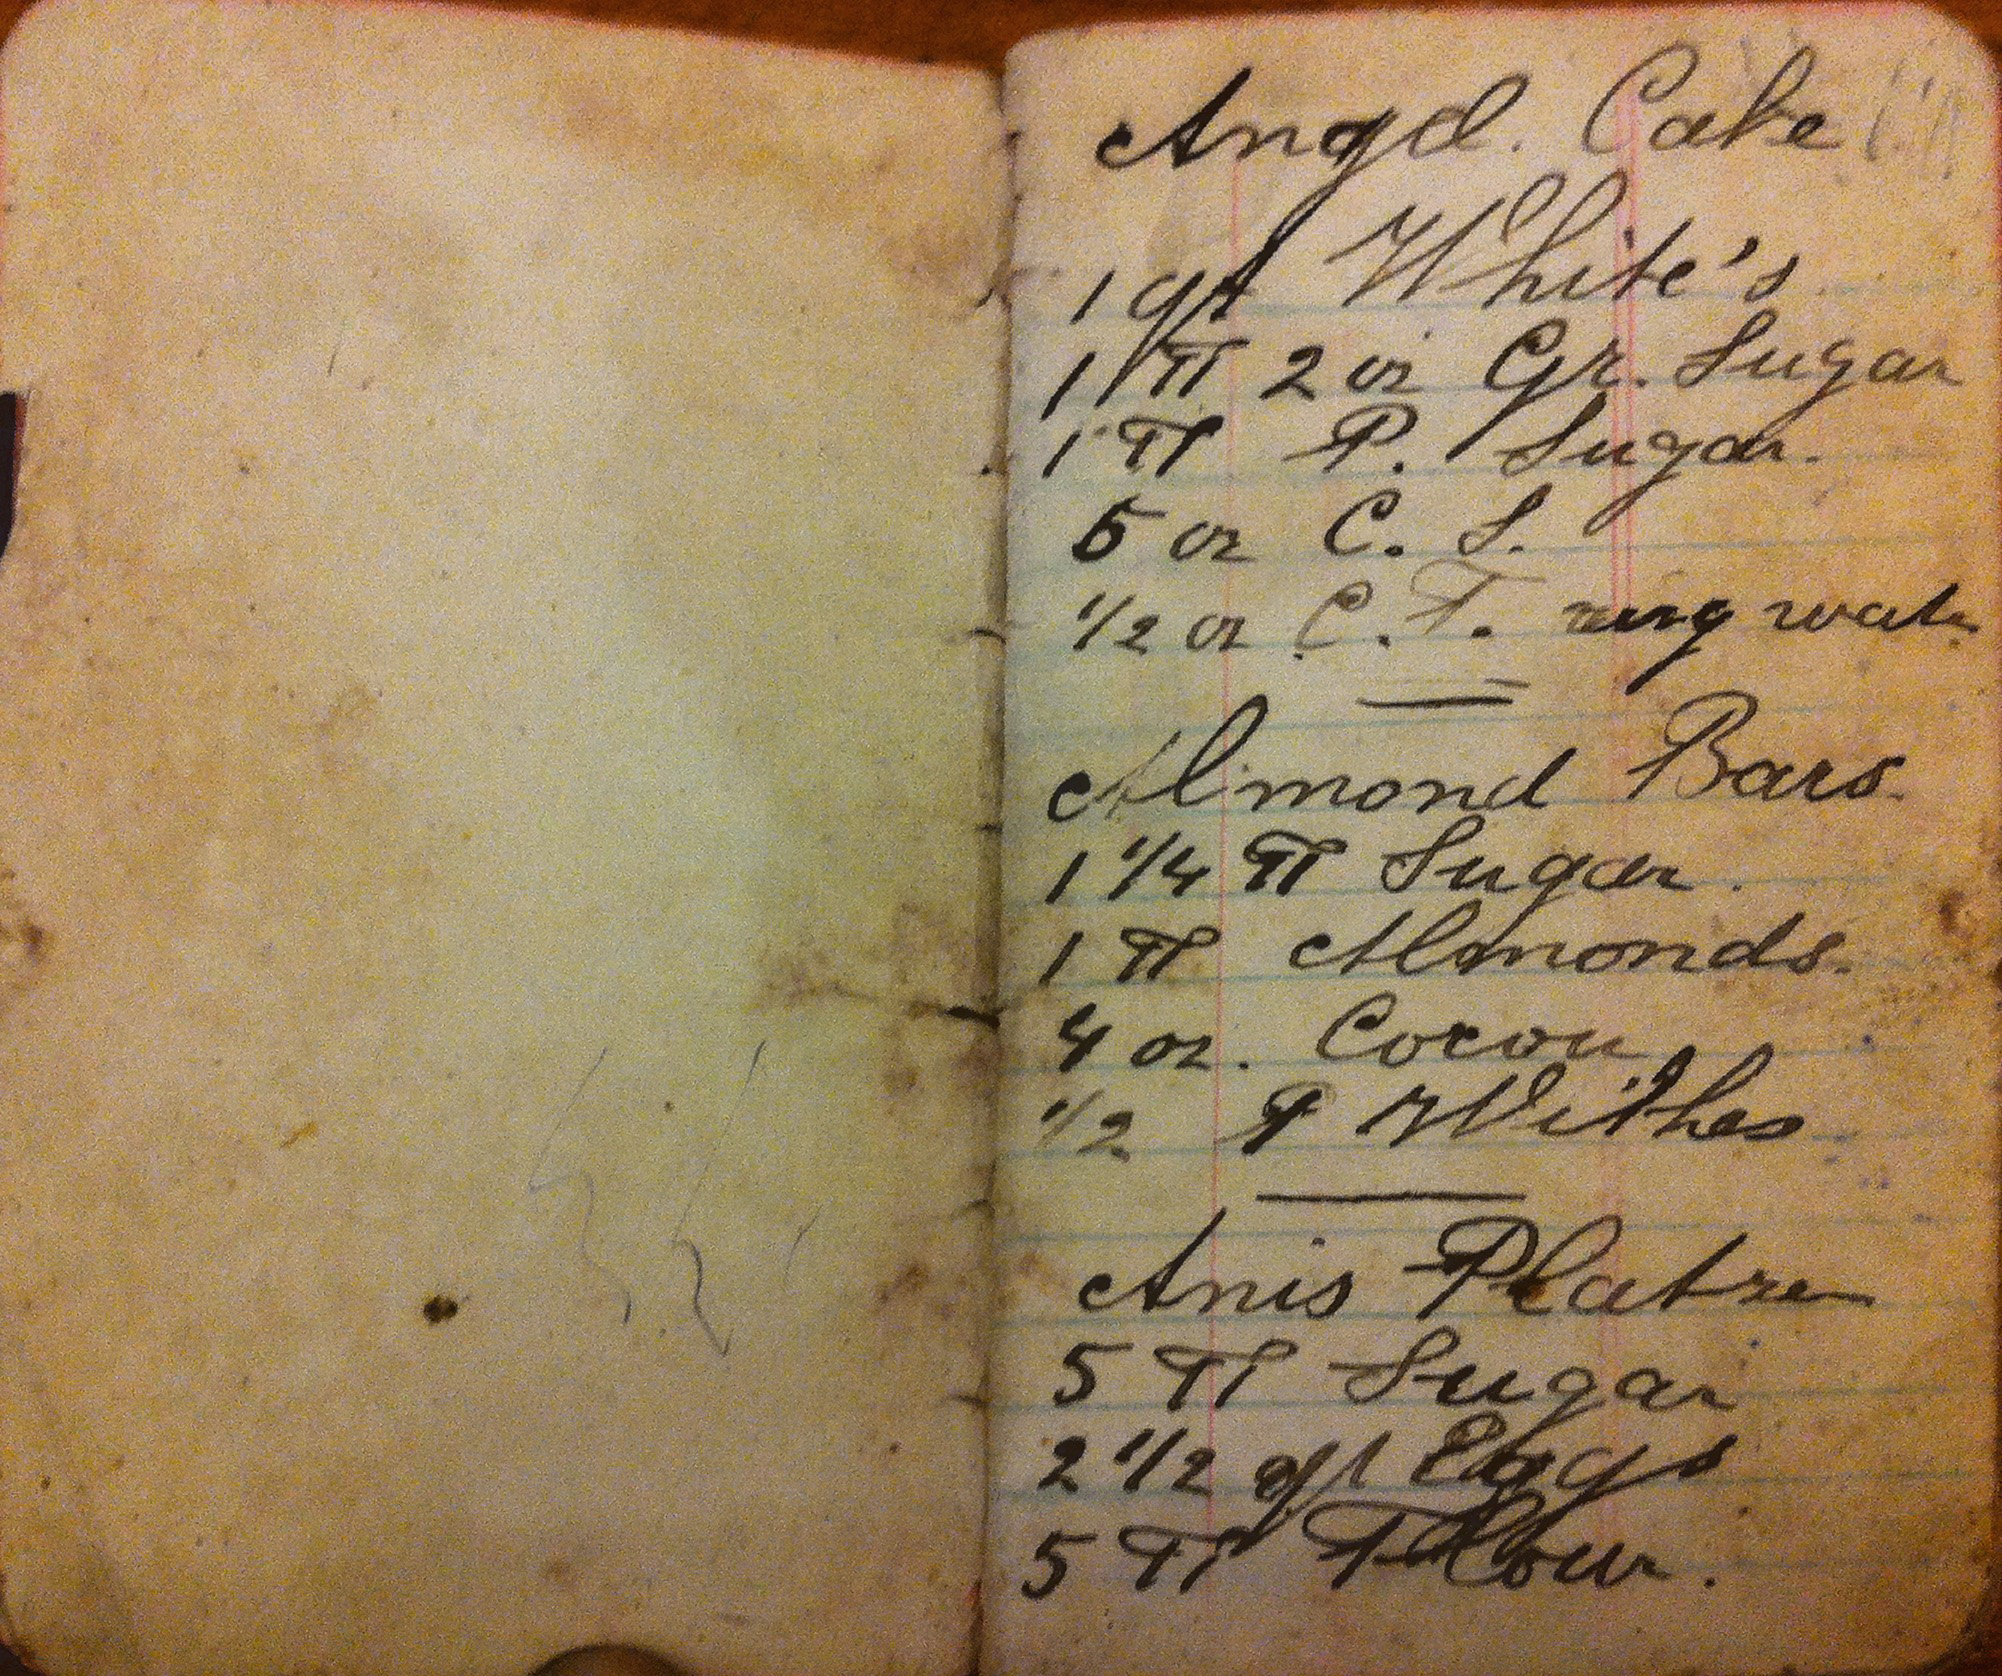 Angel. Cake
1 qt White's
1 ℔ 2 oz Gr. Sugar
1 ℔ P. Sugar.
5 oz C. S.
1/2 oz C. T.
Almond Bars
1 1/4 ℔ Sugar.
1 ℔ Almonds.
4 oz. Cocou
1/2 P Withes
Anis Platzen
5 ℔ Sugar
2 1/2 qt Eggs
5 ℔ Flour.